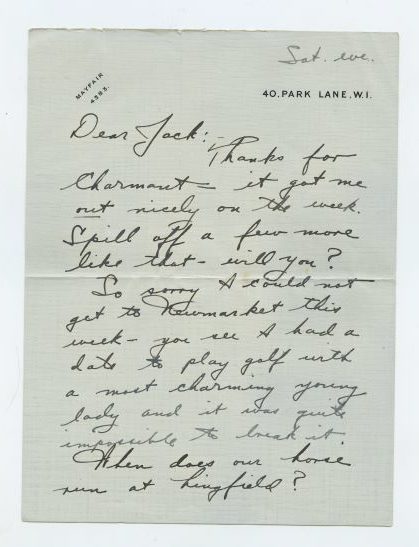 Sat. eve.
MAYFAIR
4393.
40. PARK LANE, W.1.
Dear Jack:-
Thanks for
Charmant - it got me
out nicely on the week.
Spill off a few more
like that - will you?
So sorry I could not
get to Newmarket this
week - you see I had a
date to play golf with
a most charming young
lady and it was quite
impossible to break it.
When does our horse
run at Lingfield?